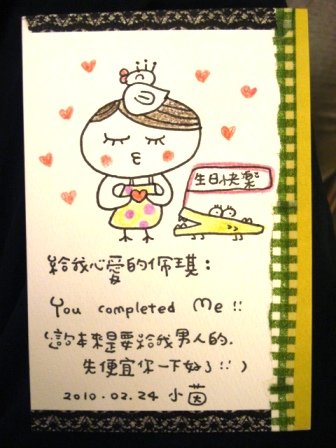 生日快樂
給我心愛的佩琪:
You completed Me !!
(這本來是要給我男人的,
先便宜你一下好了!!)
2010.02.24 小茵